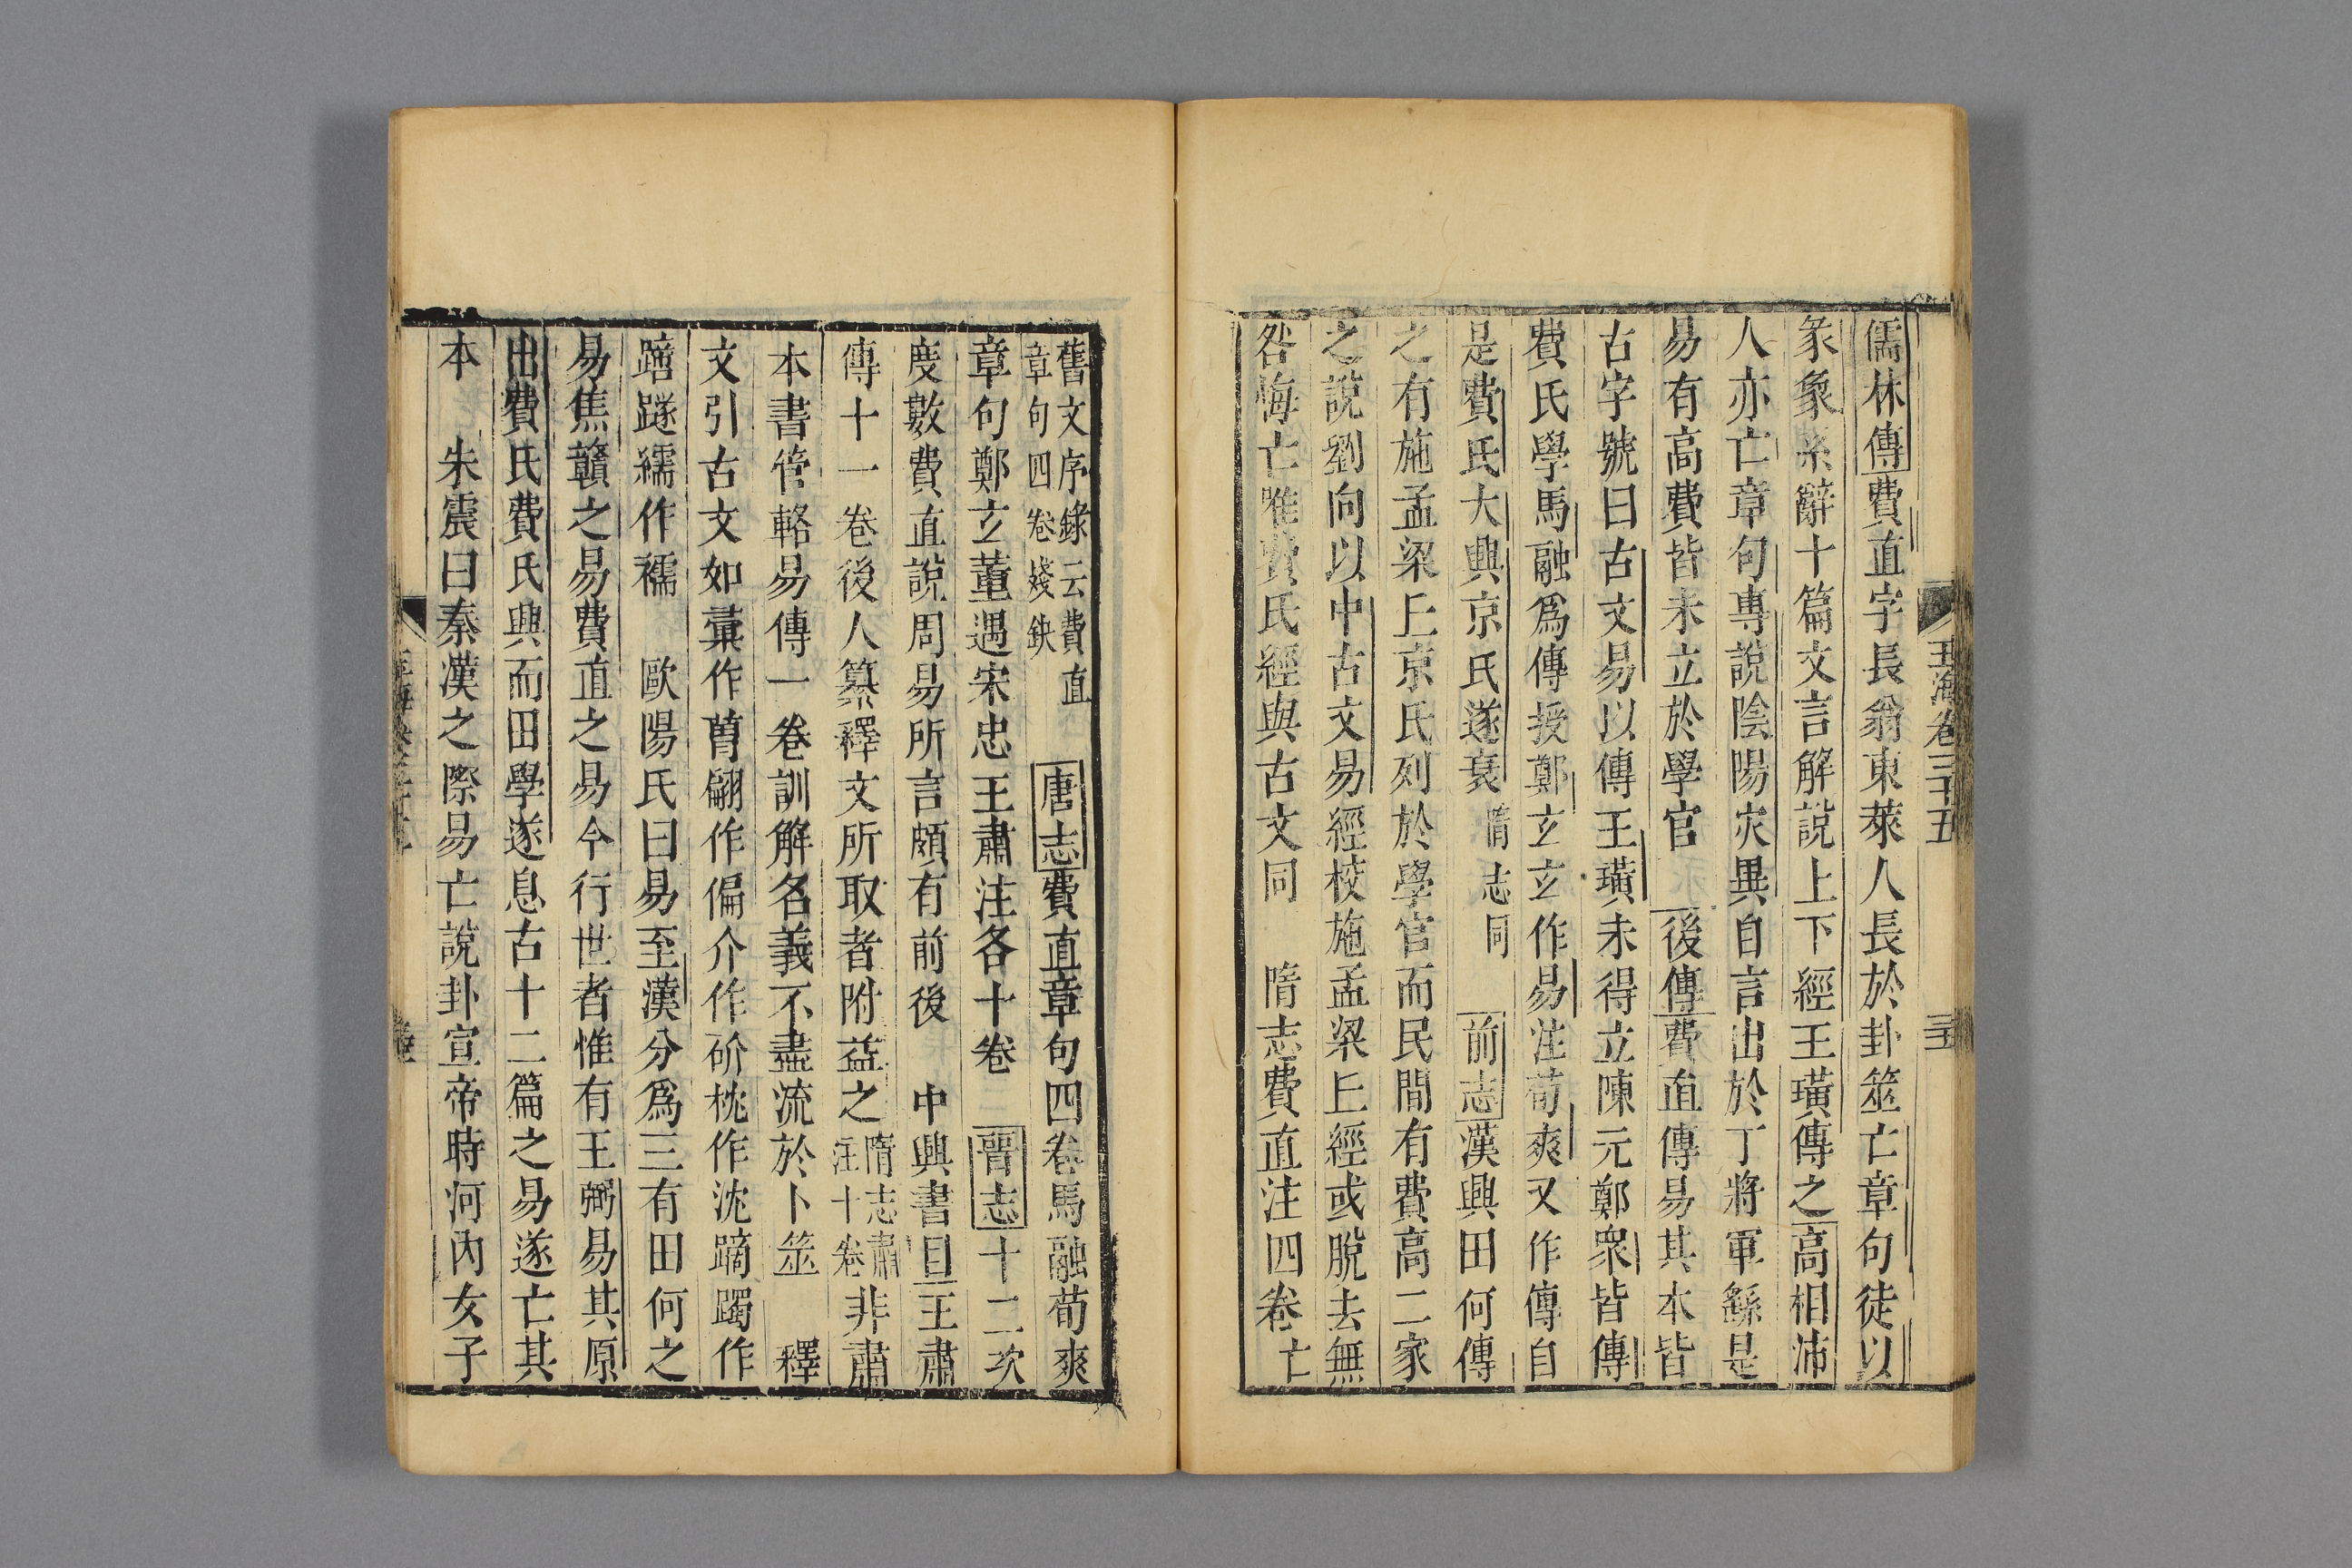 玉海卷三十五
儒林傳費直字長翁東萊人長於卦筮亡章句徒以
彖象系辭十篇文言解說上下經王璜傳之高相沛
人亦亡章句專說陰陽灾異自言出於丁將軍繇是
易有高費皆未立於學官 後傳費直傳易其本皆
古字號曰古文易以傳王璜未得立陳元鄭眾皆傳
費氏學馬融為傳授鄭玄玄作易注荀爽又作傳自
是費氏大興京氏遂衰 隋志同 前志漢興田何傳
之有施孟梁丘京氏列於學官而民間有費高二家
之說劉向以中古文易經校施孟梁丘經或脫去無
咎悔亡唯費氏經與古文同 隋志費直注四卷亡
舊文序錄云費直
章句四卷殘缺
唐志費直章句四卷馬融荀爽
章句鄭玄董遇宋忠王肅注各十卷 晉志十二次
度數費直說周易所言頗有前後 中興書目王肅
傳十一卷後人纂釋文所取者附益之隋志肅注十卷非肅
本書管輅易傳一卷訓解名義不盡流於卜筮 釋
文引古文如彙作𦳊翩作偏介作砎枕作沈蹢躅作
𨄔𨆏繻作襦 歐陽氏曰易至漢分為三有田何之
易焦贛之易費直之易今行世者惟有王弼易其原
出費氏費氏興而田學遂息古十二篇之易遂亡其
本 朱震曰秦漢之際易亡說卦宣帝時河內女子